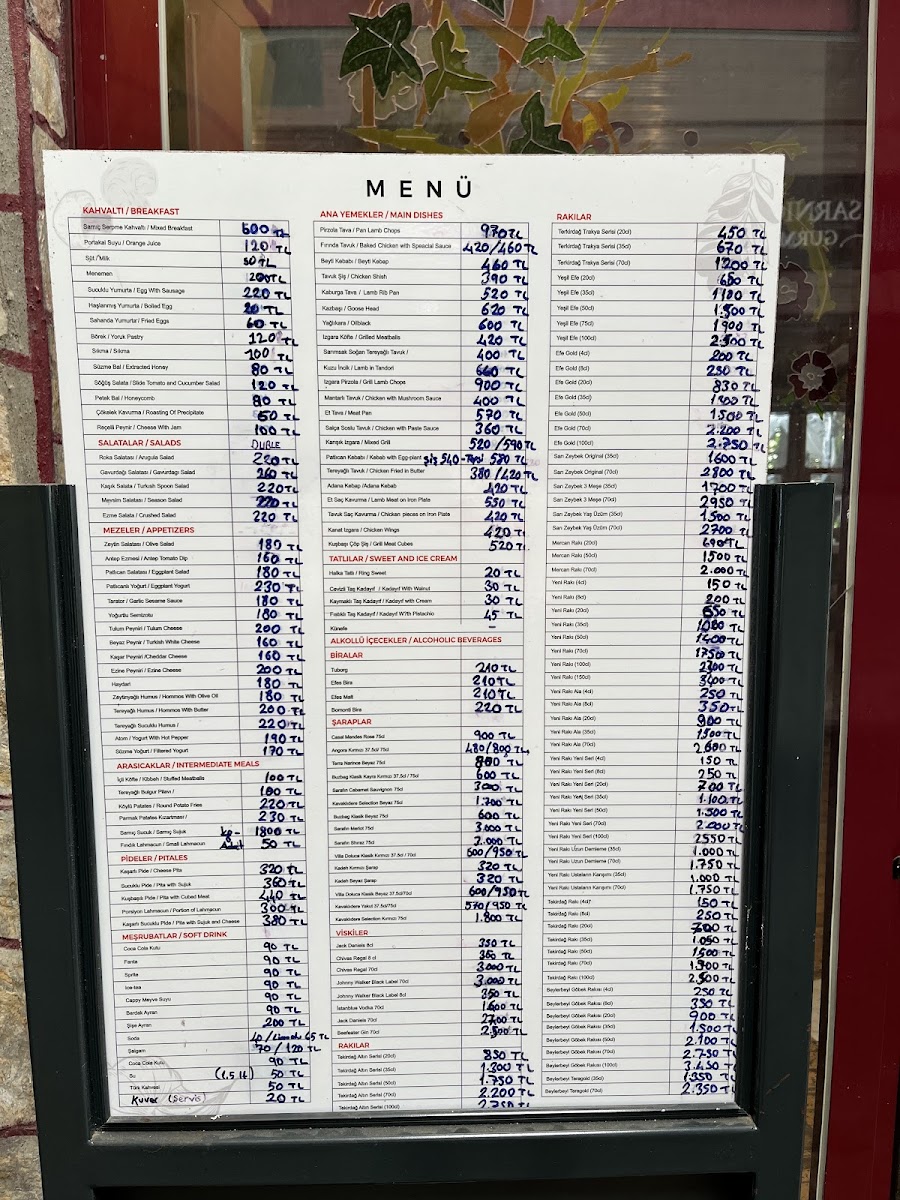 MENÜ
KAHVALTI / BREAKFAST
Sarnıç Serpme Kahvaltı / Mixed Breakfast 600 TL
Portakal Suyu / Orange Juice 120 TL
Süt / Milk 50 TL
Menemen 200 TL
Sucuklu Yumurta / Egg With Sausage 220 TL
Haşlanmış Yumurta / Boiled Egg 20 TL
Sahanda Yumurta / Fried Eggs 60 TL
Börek / Yoruk Pastry 120 TL
Sıkma / Sıkma 100 TL
Süzme Bal / Extracted Honey 80 TL
Söğüş Salata / Slide Tomato and Cucumber Salad 120 TL
Petek Bal / Honeycomb 80 TL
Çökelek Kavurma / Roasting Of Precipitate 60 TL
Reçelli Peynir / Cheese With Jam 100 TL
SALATALAR / SALADS DUBLE
Roka Salatası / Arugula Salad 220 TL
Gavurdağı Salatası / Gavurdagı Salad 260 TL
Kaşık Salata / Turkish Spoon Salad 220 TL
Mevsim Salatası / Season Salad 220 TL
Ezme Salata / Crushed Salad 220 TL
MEZELER / APPETIZERS
Zeytin Salatası / Olive Salad 180 TL
Antep Ezmesi / Antep Tomato Dip 160 TL
Patlıcan Salatası / Eggplant Salad 180 TL
Patlıcanlı Yoğurt / Eggplant Yogurt 230 TL
Tarator / Garlic Sesame Sauce 180 TL
Yoğurtlu Semizotu 180 TL
Tulum Peyniri / Tulum Cheese 200 TL
Beyaz Peynir / Turkish White Cheese 160 TL
Kaşar Peyniri /Cheddar Cheese 160 TL
Ezine Peyniri / Ezine Cheese 200 TL
Haydari 180 TL
Zeytinyağlı Humus / Hommos With Olive Oil 180 TL
Tereyağlı Humus / Hommos With Butter 200 TL
Tereyağlı Sucuklu Humus / 220 TL
Atom / Yogurt With Hot Pepper 190 TL
Süzme Yogurt / Filtered Yogurt 170 TL
ARASICAKLAR / INTERMEDIATE MEALS
İçli Köfte / Kibbeh / Stuffed Meatballs 100 TL
Tereyağlı Bulgur Pilavı / 100 TL
Köylü Patates / Round Potato Fries 220 TL
Parmak Patates Kızartması / 230 TL
Sarnıç Sucuk / Sarnıç Sujuk kg- 1800 TL
Fındık Lahmacun / Small Lahmacun Adet 50 TL
PİDELER / PITALES
Kaşarlı Pide / Cheese Pita 320 TL
Sucuklu Pide / Pita with Sujuk 360 TL
Kuşbaşılı Pide / Pita with Cubed Meat 440 TL
Porsiyon Lahmacun / Portion of Lahmacun 300 TL
Kaşarlı Sucuklu Pide / Pita with Sujuk and Cheese 380 TL
MEŞRUBATLAR / SOFT DRINK
Coca Cola Kutu 90 TL
Fanta 90 TL
Sprite 90 TL
Ice-tea 90 TL
Cappy Meyve Suyu 90 TL
Bardak Ayran 90 TL
Şişe Ayran 200 TL
Soda 40 / Limonlu 45 TL
Şalgam 70 / 120 TL
Coca Cola Kutu 90 TL
Su (1.5 lt) 50 TL
Türk Kahvesi 50 TL
Kuver (Servis) 20 TL
ANA YEMEKLER / MAIN DISHES
Pirzola Tava / Pan Lamb Chops 970 TL
Fırında Tavuk / Baked Chicken with Speacial Sauce 420 / 460 TL
Beyti Kebabı / Beyti Kebap 460 TL
Tavuk Şiş / Chicken Shish 390 TL
Kaburga Tava / Lamb Rib Pan 520 TL
Kazbaşı / Goose Head 620 TL
Yağlıkara / Oilblack 600 TL
Izgara Köfte / Grilled Meatballs 420 TL
Sarımsak Soğan Tereyağlı Tavuk / 400 TL
Kuzu İncik / Lamb in Tandori 660 TL
Izgara Pirzola / Grill Lamb Chops 900 TL
Mantarlı Tavuk / Chicken with Mushroom Sauce 400 TL
Et Tava / Meat Pan 570 TL
Salça Soslu Tavuk / Chicken with Paste Sauce 360 TL
Karışık Izgara / Mixed Grill 520 / 590 TL
Patlıcan Kebabı / Kebab with Eggplant şiş 540 - Tepsi 580 TL
Tereyağlı Tavuk / Chicken Fried in Butter 380 / 420 TL
Adana Kebap /Adana Kebab 420 TL
Et Saç Kavurma / Lamb Meat on Iron Plate 550 TL
Tavuk Saç Kavurma / Chicken pieces on Iron Plate 420 TL
Kanat Izgara / Chicken Wings 420 TL
Kuşbaşı Çöp Şiş / Grill Meat Cubes 520 TL
TATLILAR / SWEET AND ICE CREAM
Halka Tatlı / Ring Sweet 20 TL
Cevizli Taş Kadayıf / Kadayıf With Walnut 30 TL
Kaymaklı Taş Kadayıf / Kadayıf with Cream 30 TL
Fıstıklı Taş Kadayıf / Kadayıf W7th Pistachio 45 TL
Künefe –
ALKOLLÜ İÇECEKLER / ALCOHOLIC BEVERAGES
BİRALAR
Tuborg 210 TL
Efes Bira 210 TL
Efes Malt 210 TL
Bomonti Bira 220 TL
ŞARAPLAR
Casal Mendes Rose 75cl 900 TL
Angora Kırmızı 37.5cl/ 75cl 480 / 800 TL
Terra Narince Beyaz 75cl 800 TL
Buzbag Klasik Kayra Kırmızı 37.5cl / 75cl 600 TL
Sarafin Cabernet Sauvignon 75cl
Kavaklıdere Selection Beyaz 75cl 1.700 TL
Buzbag Klasik Beyaz 75cl 600 TL
Sarafin Merlot 75cl 3.000 TL
Sarafin Shiraz 75cl 2.000 TL
Villa Doluca Klasik Kırmızı 37.5cl / 75cl 600 / 950 TL
Kadeh Kırmızı Şarap 320 TL
Kadeh Beyaz Şarap 320 TL
Villa Doluca Klasik Beyaz 37.5cl/75cl 600 / 950 TL
Kavaklıdere Yakut 37.5cl/75cl 570 / 950 TL
Kavaklıdere Selection Kırmızı 75cl 1.800 TL
VİSKİLER
Jack Daniels 8cl 350 TL
Chivas Regal 8 cl 350 TL
Chivas Regal 70cl 3.000 TL
Johnny Walker Black Label 70cl 3.000 TL
Johnny Walker Black Label 8cl 350 TL
İstanblue Vodka 70cl 1.600 TL
Jack Daniels 70cl 2700 TL
Beefeater Gin 70cl 2.500 TL
RAKILAR
Tekirdağ Altın Serisi (20cl) 850 TL
Tekirdağ Altın Serisi (35cl) 1.300 TL
Tekirdağ Altın Serisi (50cl) 1.750 TL
Tekirdağ Altın Serisi (70cl) 2.200 TL
Tekirdağ Altın Serisi (100cl) 2.750 TL
RAKILAR
Terkirdağ Trakya Serisi (20cl) 450 TL
Terkirdağ Trakya Serisi (35cl) 670 TL
Terkirdağ Trakya Serisi (70cl) 1.200 TL
Yeşil Efe (20cl) 650 TL
Yeşil Efe (35cl) 1180 TL
Yeşil Efe (50cl) 1.500 TL
Yeşil Efe (75cl) 1900 TL
Yeşil Efe (100cl) 2.500 TL
Efe Gold (4cl) 200 TL
Efe Gold (8cl) 250 TL
Efe Gold (20cl) 830 TL
Efe Gold (35cl)
Efe Gold (50cl) 1.500 TL
Efe Gold (70cl) 2.200 TL
Efe Gold (100cl) 2.750 TL
Sarı Zeybek Original (35cl) 1600 TL
Sarı Zeybek Original (70cl) 2800 TL
Sarı Zeybek 3 Meşe (35cl) 1700 TL
Sarı Zeybek 3 Meşe (70cl) 2950 TL
Sarı Zeybek Yaş Üzüm (35cl) 1.500 TL
Sarı Zeybek Yaş Üzüm (70cl) 2700 TL
Mercan Rakı (20cl) 690 TL
Mercan Rakı (50cl) 1.500 TL
Mercan Rakı (70cl) 2.000 TL
Yeni Rakı (4cl) 150 TL
Yeni Rakı (8cl) 200 TL
Yeni Rakı (20cl) 650 TL
Yeni Rakı (35cl)
Yeni Rakı (50cl) 1400 TL
Yeni Rakı (70cl) 1750 TL
Yeni Rakı (100cl) 2300 TL
Yeni Rakı (150cl) 3400 TL
Yeni Rakı Ala (4cl) 250 TL
Yeni Rakı Ala (8cl) 350 TL
Yeni Rakı Ala (20cl) 900 TL
Yeni Rakı Ala (35cl) 1500 TL
Yeni Rakı Ala (70cl) 2.600 TL
Yeni Rakı Yeni Seri (4cl) 150 TL
Yeni Rakı Yeni Seri (8cl) 250 TL
Yeni Rakı Yeni Seri (20cl) 700 TL
Yeni Rakı Yeni Seri (35cl) 1.100 TL
Yeni Rakı Yeni Seri (50cl) 1.500 TL
Yeni Rakı Yeni Seri (70cl) 2.000 TL
Yeni Rakı Yeni Seri (100cl) 2550 TL
Yeni Rakı Uzun Demleme (35cl) 1.000 TL
Yeni Rakı Uzun Demleme (70cl) 1.750 TL
Yeni Rakı Ustaların Karışımı (35cl) 1.000 TL
Yeni Rakı Ustaların Karışımı (70cl) 1.750 TL
Tekirdağ Rakı (4cl) 150 TL
Tekirdağ Rakı (8cl) 250 TL
Tekirdağ Rakı (20cl) 700 TL
Tekirdağ Rakı (35cl) 1.050 TL
Tekirdağ Rakı (50cl) 1.500 TL
Tekirdağ Rakı (70cl) 1.900 TL
Tekirdağ Rakı (100cl) 2.500 TL
Beylerbeyi Göbek Rakısı (4cl) 250 TL
Beylerbeyi Göbek Rakısı (8cl) 350 TL
Beylerbeyi Göbek Rakısı (20cl) 900 TL
Beylerbeyi Göbek Rakısı (35cl) 1.500 TL
Beylerbeyi Göbek Rakısı (50cl) 2.100 TL
Beylerbeyi Göbek Rakısı (70cl) 2.750 TL
Beylerbeyi Göbek Rakısı (100cl) 3.450 TL
Beylerbeyi Teragold (35cl) 1.350 TL
Beylerbeyi Teragold (70cl) 2.350 TL